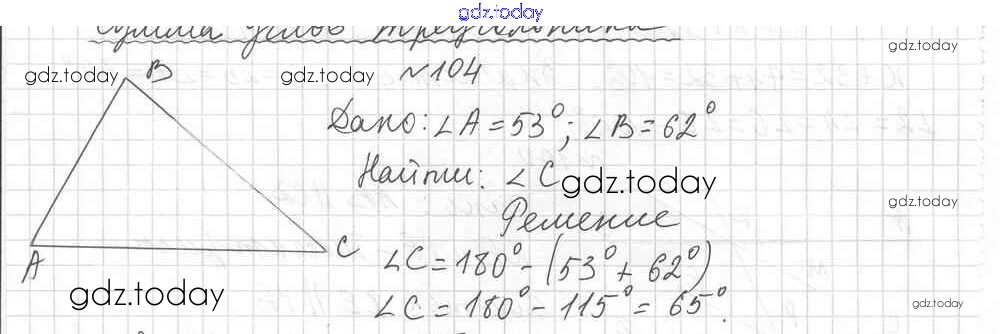 gdz.today
Сумма углов треугольника
gdz.today
gdz.today B gdz.today №104
Дано: ∠A = 53°; ∠B = 62°
Найти: ∠C gdz.today
gdz.today
Решение
A C ∠C = 180° - (53° + 62°)
gdz.today ∠C = 180° - 115° = 65°.
gdz.today